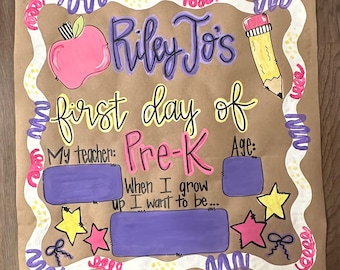 Riley Jo's
first day of
My teacher: Pre-K Age:
When I grow
up I want to be...